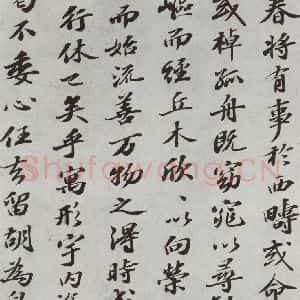 春将有事於西疇或命
或棹孤舟既窈窕以尋
嶇而經丘木欣〻以向榮
而始流善万物之得時
行休已矣乎寓形宇内
曷不委心任去留胡為
Shufawang.CN